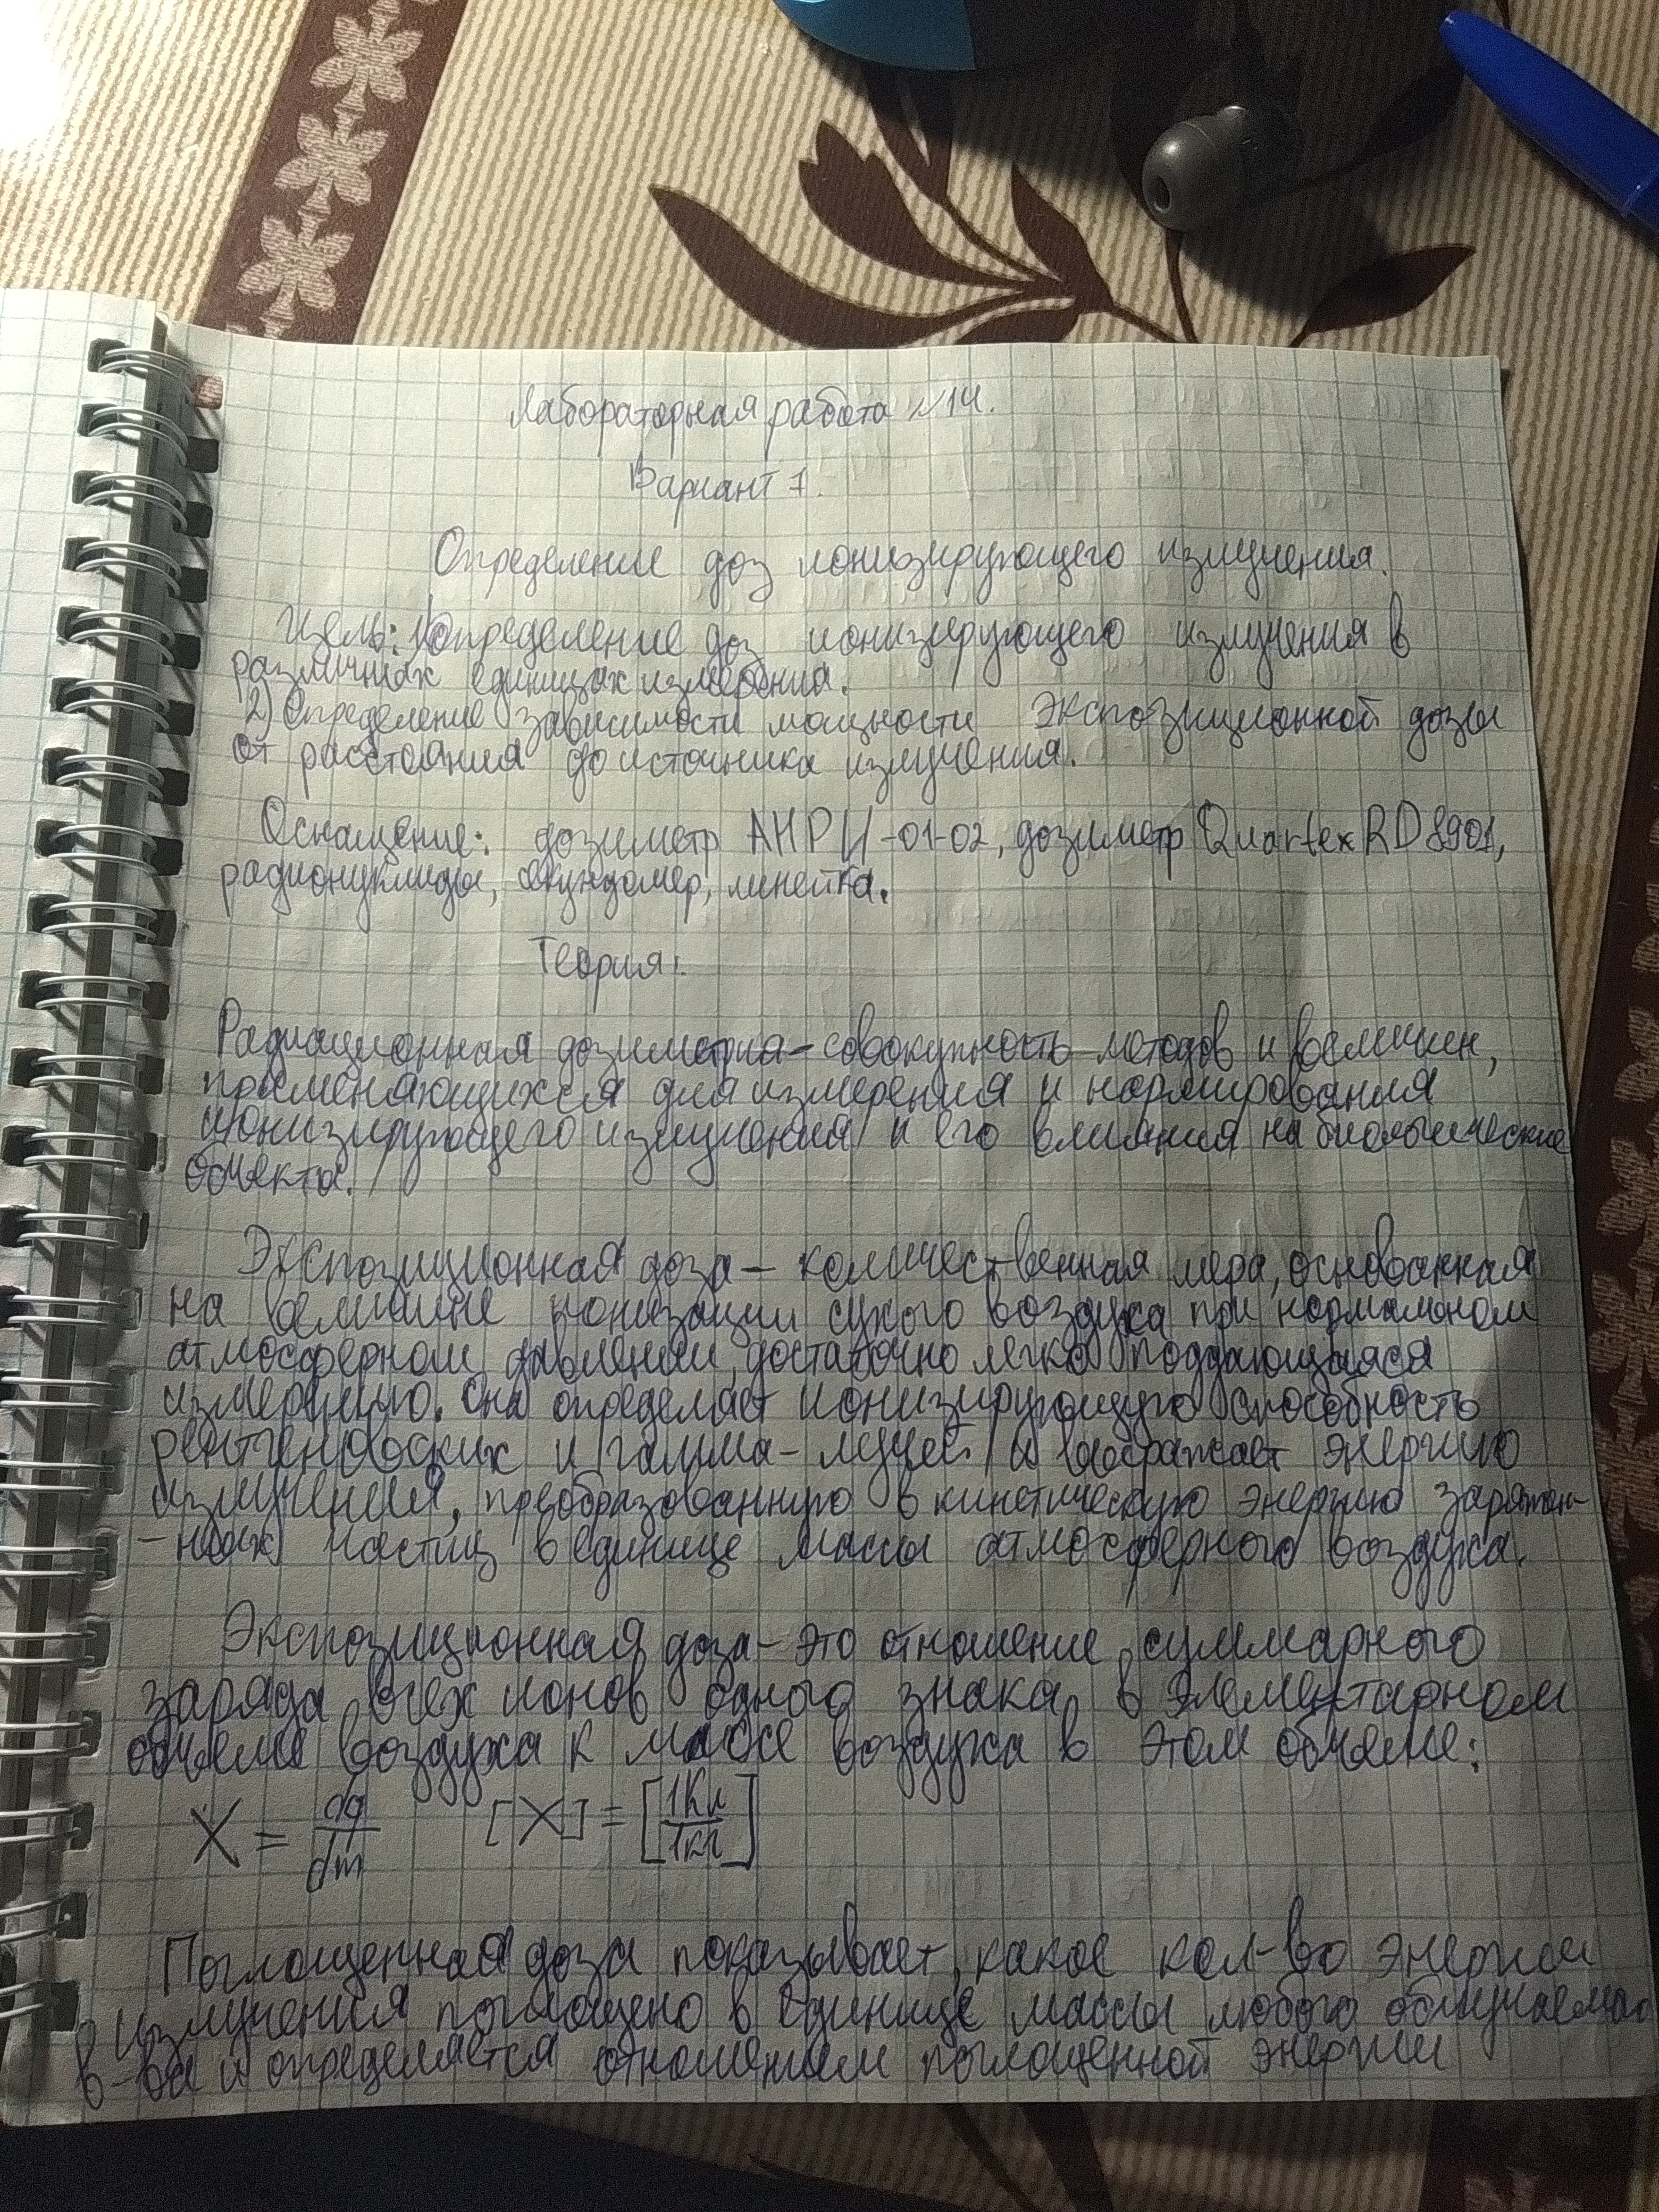 Лабораторная работа №14.
Вариант 7.
Определение доз ионизирующего излучения.
Цель: 1) определение доз ионизирующего излучения в
различных единицах измерения.
2) Определение зависимости мощности экспозиционной дозы
от расстояния до источника излучения.
Оснащение: дозиметр АНРИ-01-02, дозиметр Quartex RD8901,
радионуклиды, секундомер, линейка.
Теория:
Радиационная дозиметрия - совокупность методов и величин,
применяющихся для измерения и нормирования
ионизирующего излучения и его влияния на биологические
объекты.
Экспозиционная доза - количественная мера, основанная
на величине ионизации сухого воздуха при нормальном
атмосферном давлении, достаточно легко поддающаяся
измерению. Она определяет ионизирующую способность
рентгеновских и гамма-лучей и выражает энергию
излучения, преобразованную в кинетическую энергию заряжен-
-ных частиц в единице массы атмосферного воздуха.
Экспозиционная доза - это отношение суммарного
заряда всех ионов одного знака в элементарном
объеме воздуха к массе воздуха в этом объеме:
X = dq/dm [X] = [1Кл/1кг]
Поглощенная доза показывает, какое кол-во энергии
излучения поглощено в единице массы любого облучаемого
в-ва и определяется отношением поглощенной энергии